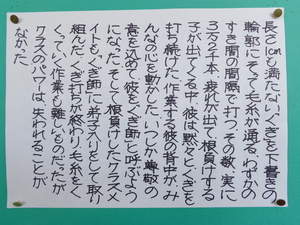 長さ1cmも満たないくぎを下書きの
輪郭にそって毛糸が通る、わずかの
すき間の間隔で打つ。その数、実に
3万2千本。疲れが出て根負けする
子が出てくる中、彼は黙々とくぎを
打ち続けた。作業する彼の背中が、み
んなの心を動かした。いつしか尊敬の
意を込めて彼を「くぎ師」と呼ぶよう
になった。そして根負けしたクラスメ
イトも「くぎ師」に弟子入りをして取り
組んだ。くぎ打ちが終わり、毛糸をく
くっていく作業も難しいものだったが
クラスのパワーは、失われることが
なかった。